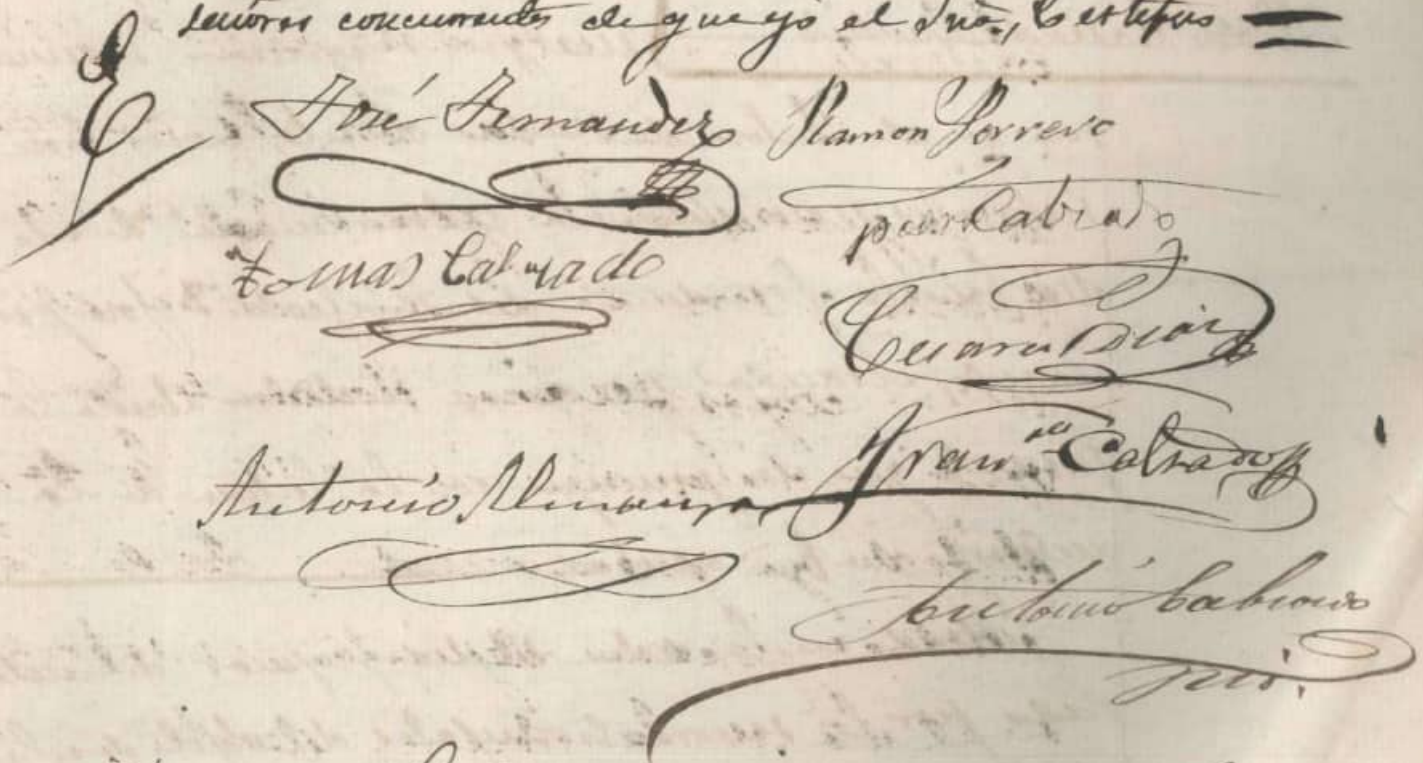 señores concurrentes de que yo el Srio, Certifico =
José Fernandez
Ramon Porrero
Tomas Calzado
Cesareo Diaz
Antonio Almansa
Franco Calzado
Antonio